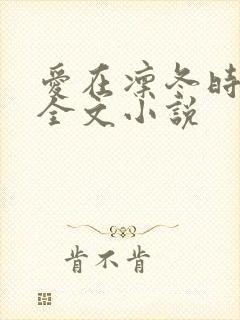 愛在凜冬時
全文小說
肯不肯